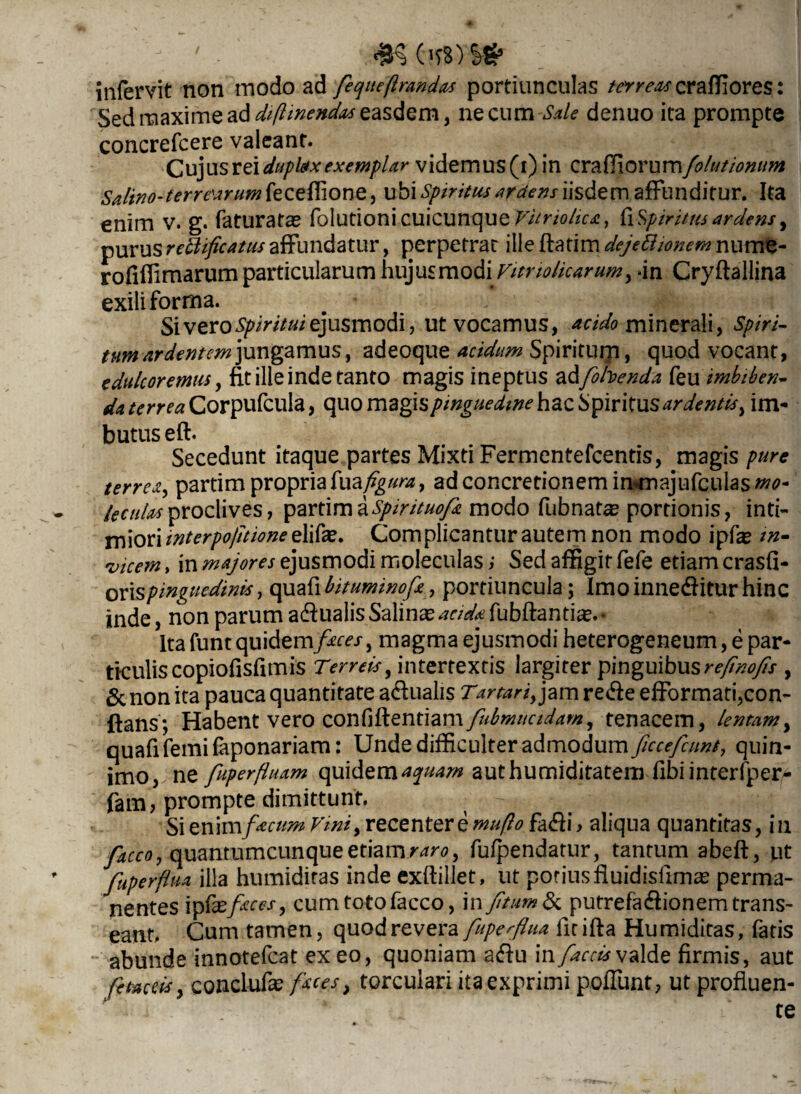 (158)
inſervit non modo ad ſequeſtrandas portiunculas terreas craſſiores:
Sed maxime ad diſtinendas easdem, ne cum Sale denuo ita prompte
concreſcere valeant.
Cujus rei duplex exemplar videmus (1) in craſſiorum ſolutionum
Salino-terrearum ſeceſſione, ubi Spiritus ardens iisdem affunditur. Ita
enim v. g. ſaturatæ ſolutioni cuicunque Vitriolicæ, ſi Spiritus ardens,
purus rectificatus affundatur, perpetrat ille ſtatim dejectionem nume-
roſiſſimarum particularum hujusmodi Vitriolicarum, in Cryſtallina
exili forma.
Si vero Spiritui ejusmodi, ut vocamus, acido minerali, Spiri-
tum ardentem jungamus, adeoque acidum Spiritum, quod vocant,
edulcoremus, fit ille inde tanto magis ineptus ad ſolvenda ſeu imbiben-
da terrea Corpuſcula, quo magis pinguedine hac Spiritus ardentis, im-
butus eſt.
Secedunt itaque partes Mixti Fermenteſcentis, magis pure
terreæ, partim propria ſua figura, ad concretionem in majuſculas mo-
leculas proclives, partim à Spirituoſæ modo ſubnatæ portionis, inti-
miori interpoſitione eliſæ. Complicantur autem non modo ipſæ in-
vicem, in majores ejusmodi moleculas; Sed affigit ſeſe etiam crasſi-
oris pinguedinis, quaſi bituminoſæ, portiuncula; Imo innectitur hinc
inde, non parum actualis Salinæ acidæ ſubſtantiæ.
Ita ſunt quidem fæces, magma ejusmodi heterogeneum, è par-
ticulis copioſisſimis Terreis, intertextis largiter pinguibus reſinoſis,
& non ita pauca quantitate actualis Tartari, jam recte efformati, con-
ſtans; Habent vero conſiſtentiam ſubmucidam, tenacem, lentam,
quaſi ſemi ſaponariam: Unde difficulter admodum ſicceſcunt, quin-
imo, ne ſuperfluam quidem aquam aut humiditatem ſibi interſper-
ſam, prompte dimittunt.
Si enim fæcum Vini, recenter è muſto facti, aliqua quantitas, in
ſacco, quantumcunque etiam raro, ſuſpendatur, tantum abeſt, ut
ſuperflua illa humiditas inde exſtillet, ut potius fluidisſimæ perma-
nentes ipſæ fæces, cum toto ſacco, in ſitum & putrefactionem trans-
eant. Cum tamen, quod revera ſuperflua ſit iſta Humiditas, ſatis
abunde innoteſcat ex eo, quoniam actu in ſaccis valde firmis, aut
ſetaceis, concluſæ fæces, torculari ita exprimi poſſunt, ut profluen-
te